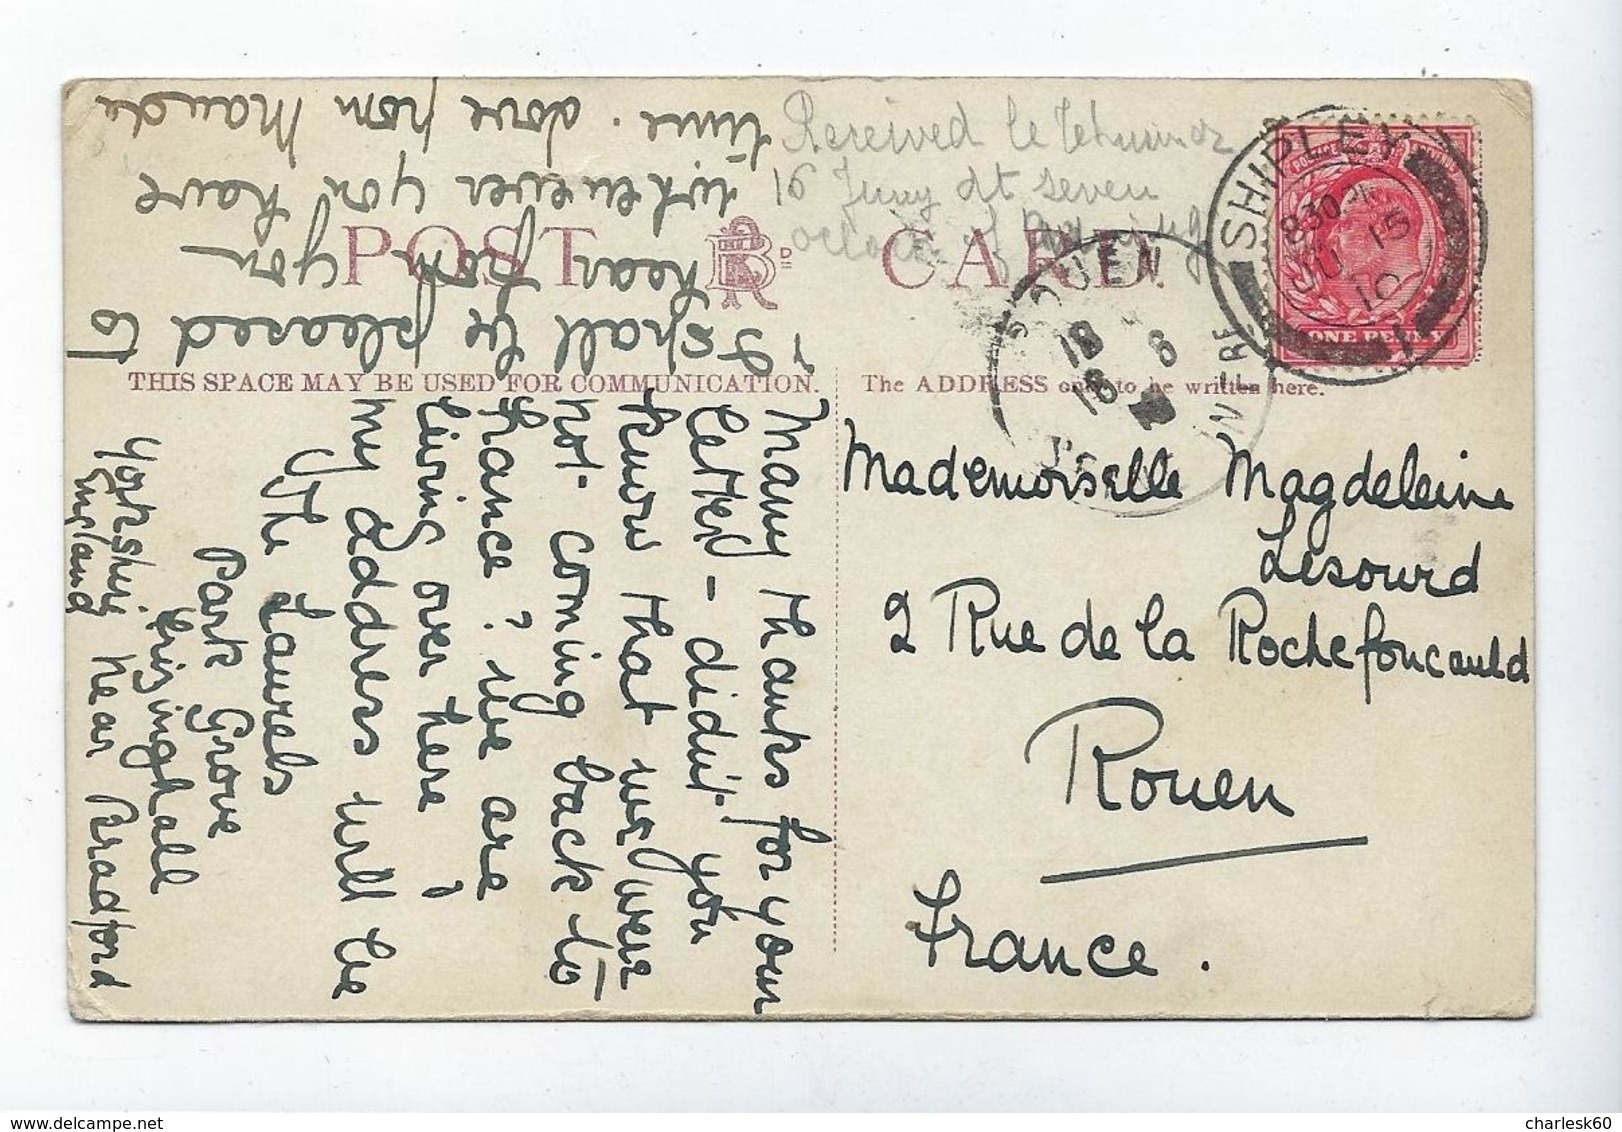 Received le
16 Juny at seven
SHIPLEY
830 PM
JU 15
10
1
POSTAGE & REVENUE
ONE PENNY
POST CARD.
THIS SPACE MAY BE USED FOR COMMUNICATION.
The ADDRESS only to be written here.
ROUEN
16 6
Many thanks for your
letter - didn't you
know that we were
not coming back to
France? We are
living over here!
My address will be
"The Laurels
Park Grove
Frizinghall
Yorkshire near Bradford
England
I shall be pleased to
hear from you
whenever you have
time. Love from Maude
Mademoiselle Magdeleine
Lesourd
2 Rue de la Rochefoucauld
Rouen
France.
charlesk60